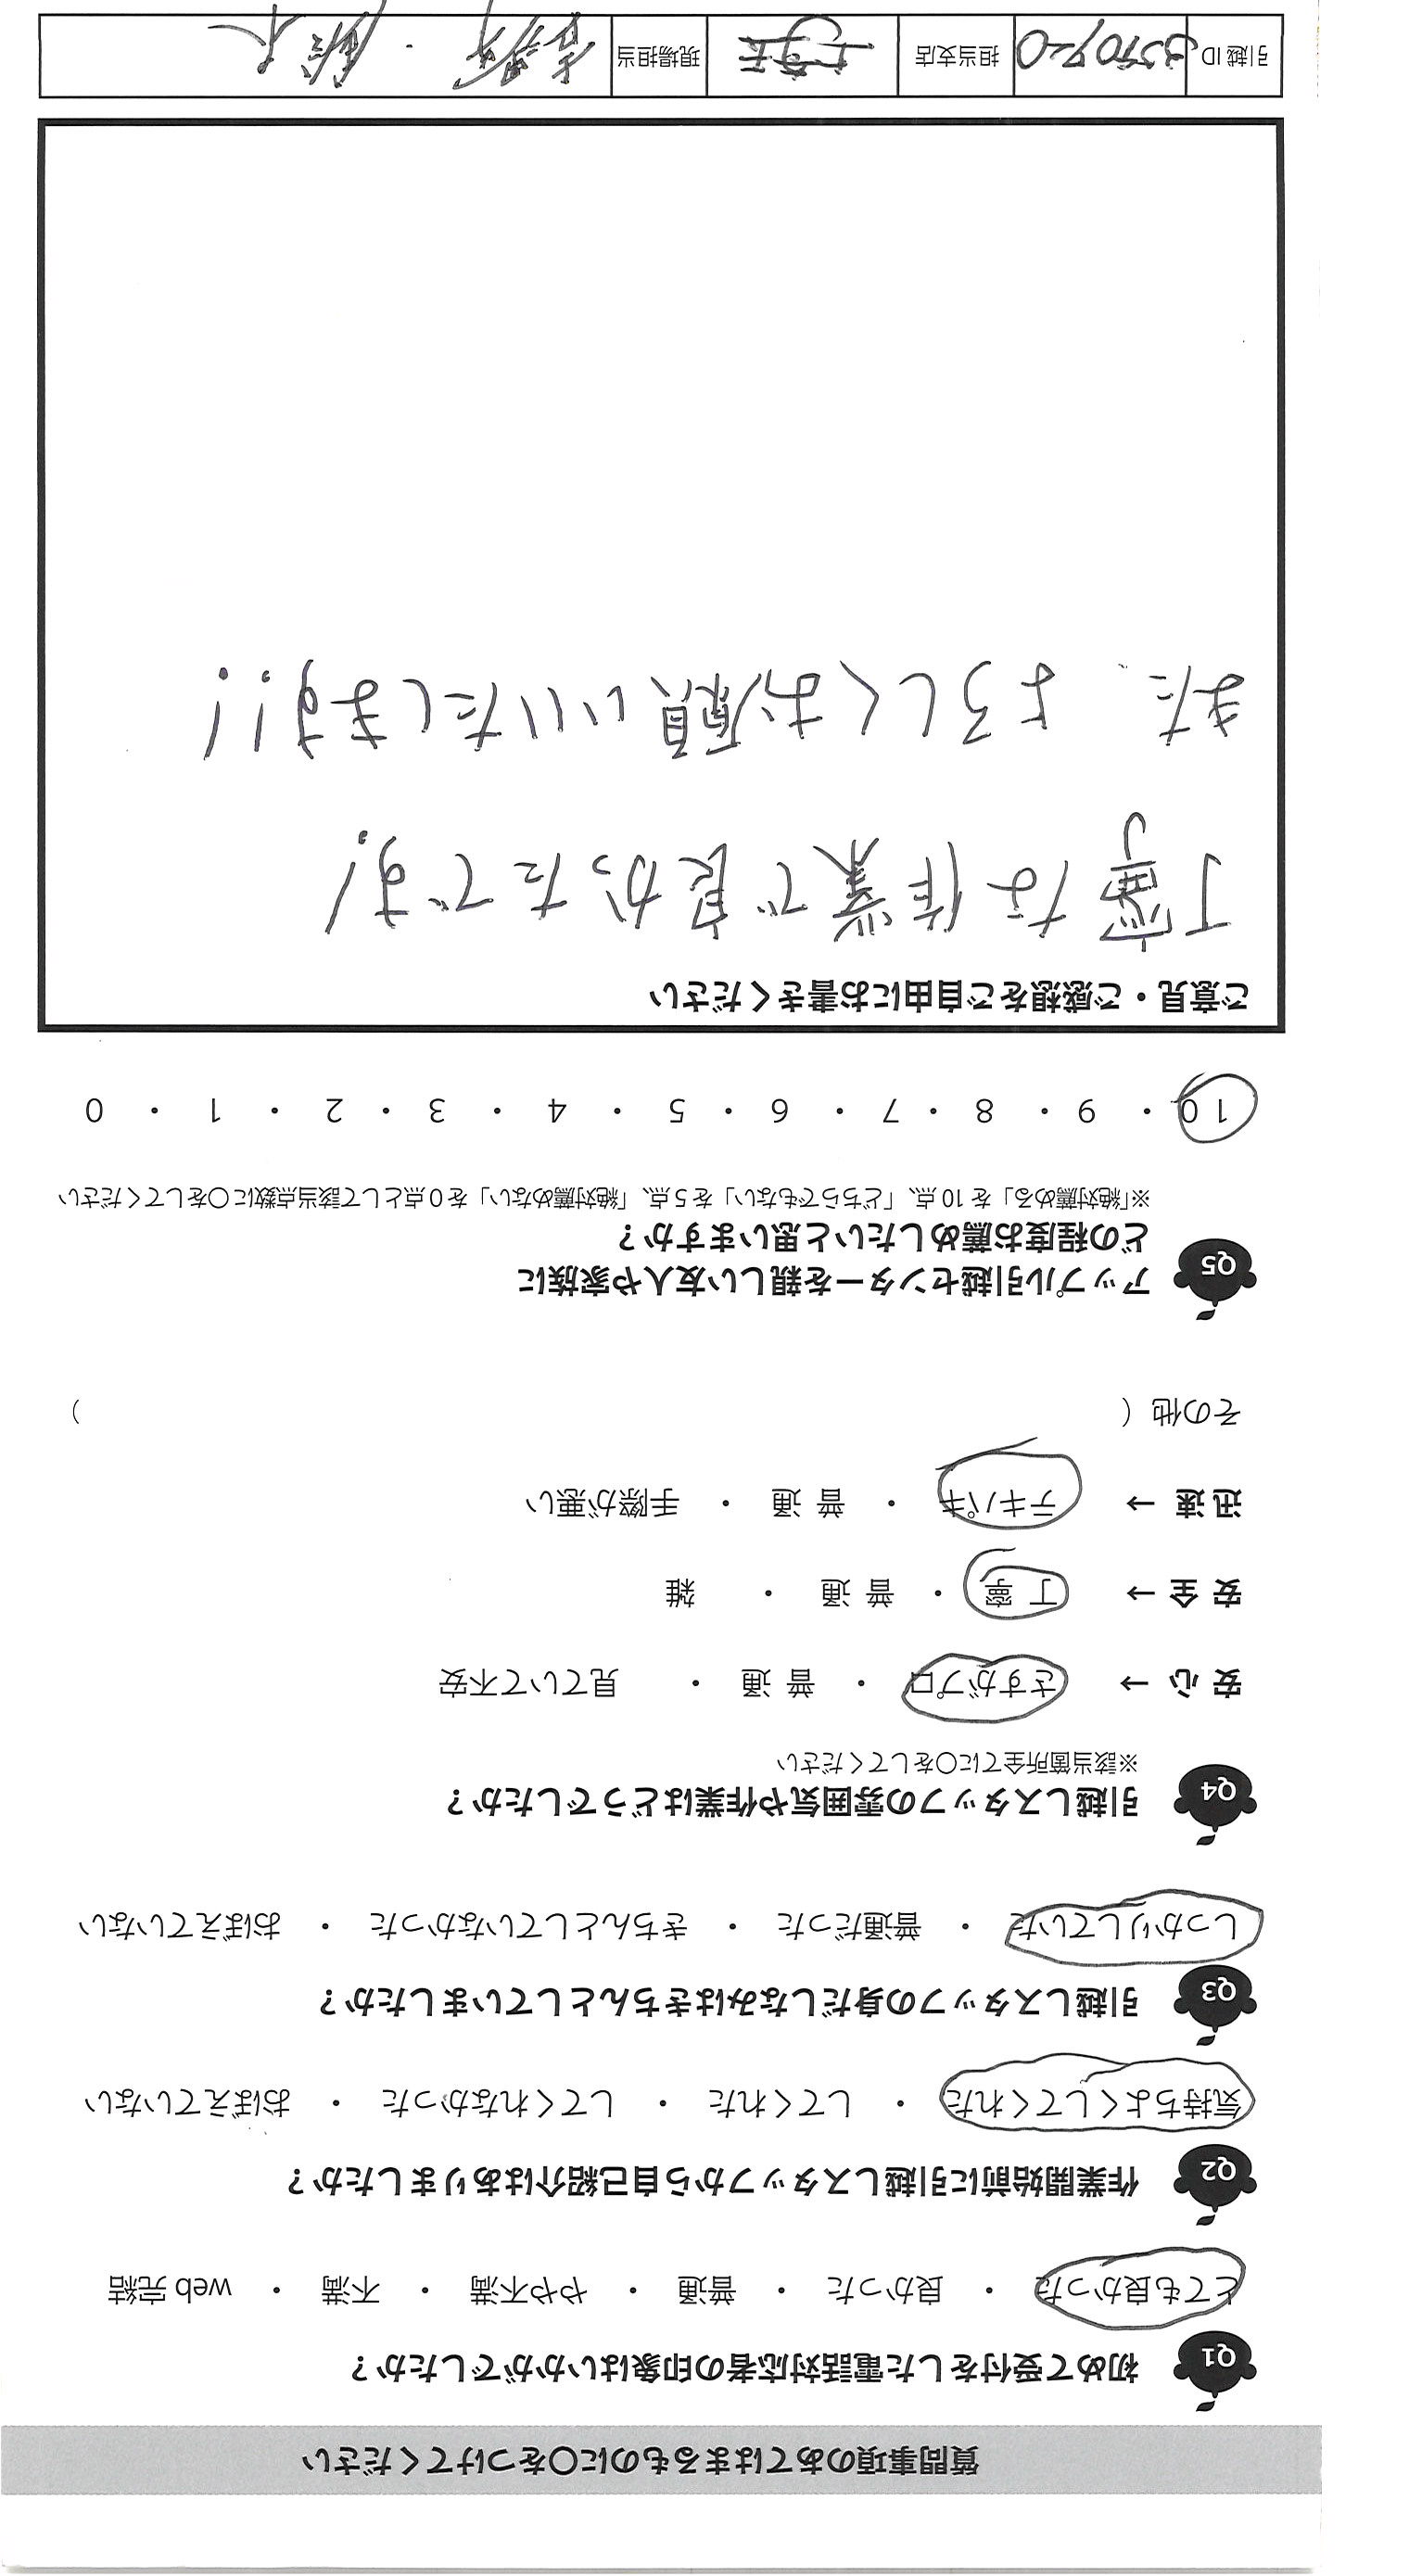 質問事項のあてはまるものに〇をつけてください
Q1 初めて受付をした電話対応者の印象はいかがでしたか？
とても良かった ・ 良かった ・ 普通 ・ やや不満 ・ 不満 ・ web 完結
Q2 作業開始前に引越しスタッフから自己紹介はありましたか？
気持ちよくしてくれた ・ してくれた ・ してくれなかった ・ おぼえていない
Q3 引越しスタッフの身だしなみはきちんとしていましたか？
しっかりしていた ・ 普通だった ・ きちんとしていなかった ・ おぼえていない
Q4 引越しスタッフの雰囲気や作業はどうでしたか？
※該当箇所全てに〇をしてください
安 心 → さすがプロ ・ 普 通 ・ 見ていて不安
安 全 → 丁 寧 ・ 普 通 ・ 雑
迅 速 → テキパキ ・ 普 通 ・ 手際が悪い
その他（ ）
Q5 アップル引越センターを親しい友人や家族に
どの程度お薦めしたいと思いますか？
※「絶対薦める」を 10 点、「どちらでもない」を 5 点、「絶対薦めない」を 0 点として該当点数に〇をしてください
10 ・ 9 ・ 8 ・ 7 ・ 6 ・ 5 ・ 4 ・ 3 ・ 2 ・ 1 ・ 0
ご意見・ご感想をご自由にお書きください
丁寧な作業で良かったです!
また、よろしくお願いいたします!!
引越 ID 担当支店 現場担当 ・ 鈴木